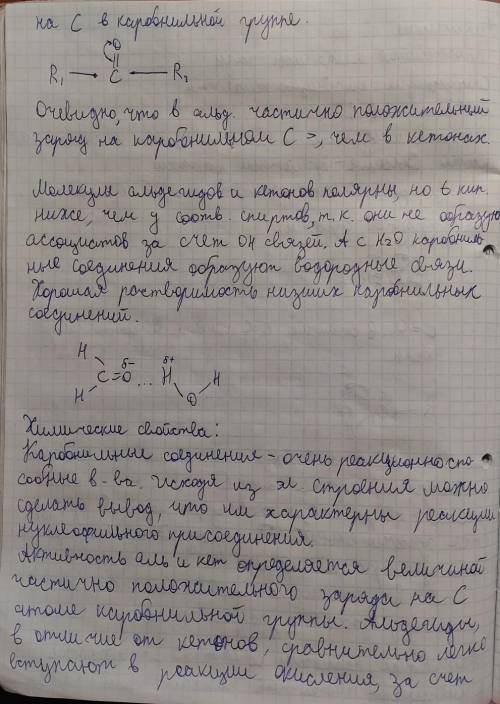 на С в карбонильной группе.
O
R₁ → C ← R₂
Очевидно, что в альд. частично положительный
заряд на карбонильном С >, чем в кетонах.
Молекулы альдегидов и кетонов полярны, но t кип.
ниже, чем у соотв. спиртов, т.к. они не образую
ассоциатов за счет OH связей. А с H₂O карбониль-
ные соединения образуют водородные связи.
Хорошая растворимость низших карбонильных
соединений.
H δ- δ+
C=O ... H H
H O
Химические свойства:
Карбонильные соединения - очень реакционноспо
собные в-ва. исходя из эл. строения можно
сделать вывод, что им характерны реакции
нуклеофильного присоединения.
Активность аль и кет определяется величиной
частично положительного заряда на С
атоме карбонильной группы. Альдегиды,
в отличие от кетонов, сравнительно легко
вступают в реакции окисления, за счет